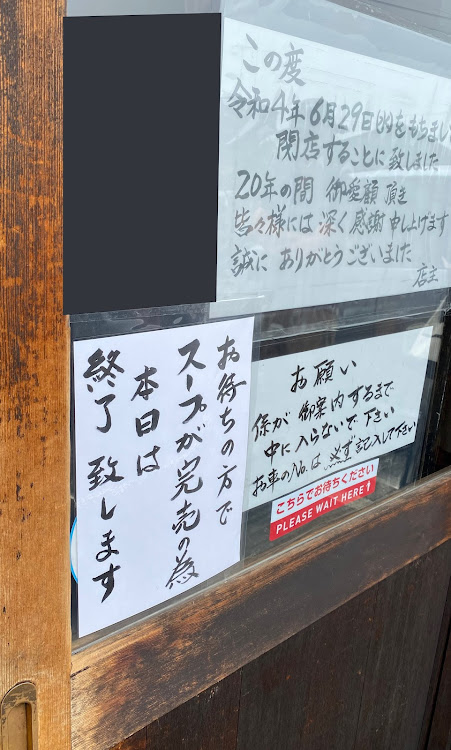 この度
令和4年 6月29日(水)をもちまし
閉店することに致しました
20年の間 御愛顧 頂き
皆々様には 深く感謝 申し上げます
誠に ありがとうございました
店主
お待ちの方で
スープが完売の為
本日は
終了 致します
お願い
係が 御案内するまで
中に入らないで下さい
お車のNo.は 必ず記入して下さい
こちらでお待ちください
PLEASE WAIT HERE↑